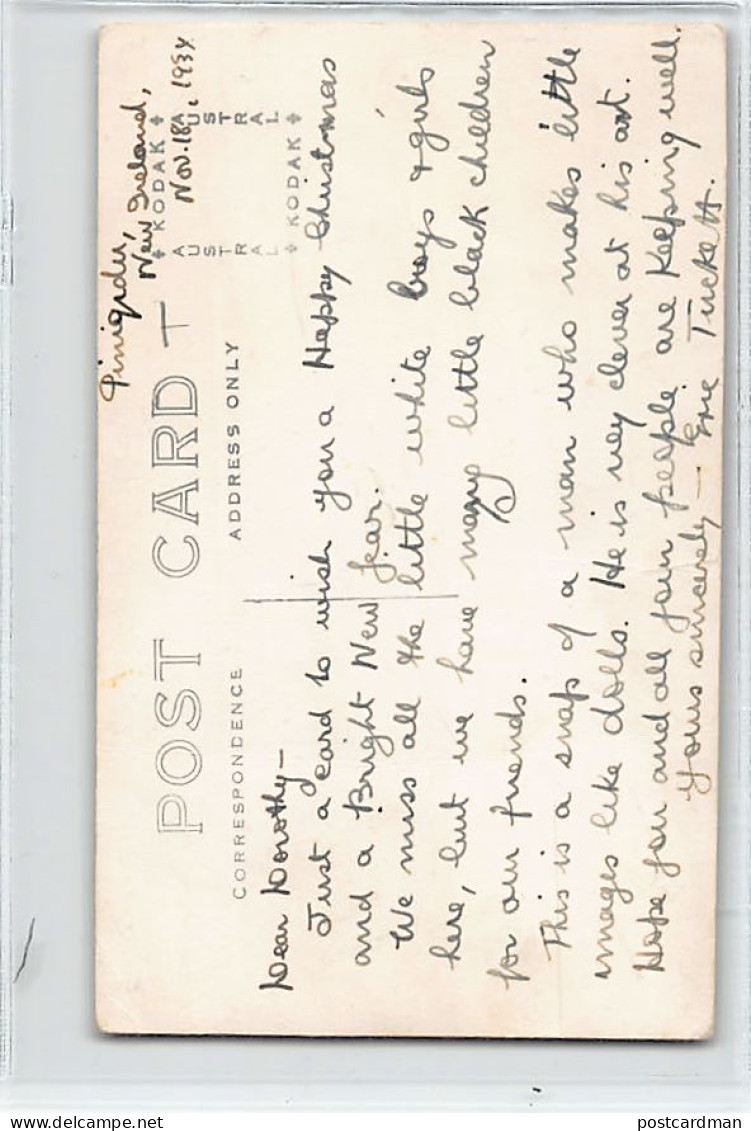 Pinigidu,
New Ireland,
Nov. 18, 1934
POST CARD
CORRESPONDENCE
ADDRESS ONLY
KODAK
AUSTRAL
AUSTRAL
KODAK
Dear Dorothy –
Just a card to wish you a Happy Christmas
and a Bright New Year.
We miss all the little white boys & girls
here, but we have many little black children
for our friends.
This is a snap of a man who makes little
images like dolls. He is very clever at his art.
Hope you and all your people are keeping well.
Yours sincerely – Eric Tuckett.
postcardman